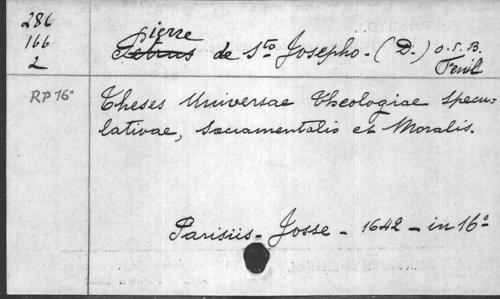 286
166
2
Pierre
Petrus de Sto Josepho. (D.) O.S.B.
Feuil
RP 16°
Theses Universae Theologiae Specu-
lativae, Sacramentalis et Moralis.
Parisiis - Josse - 1642 - in 16°